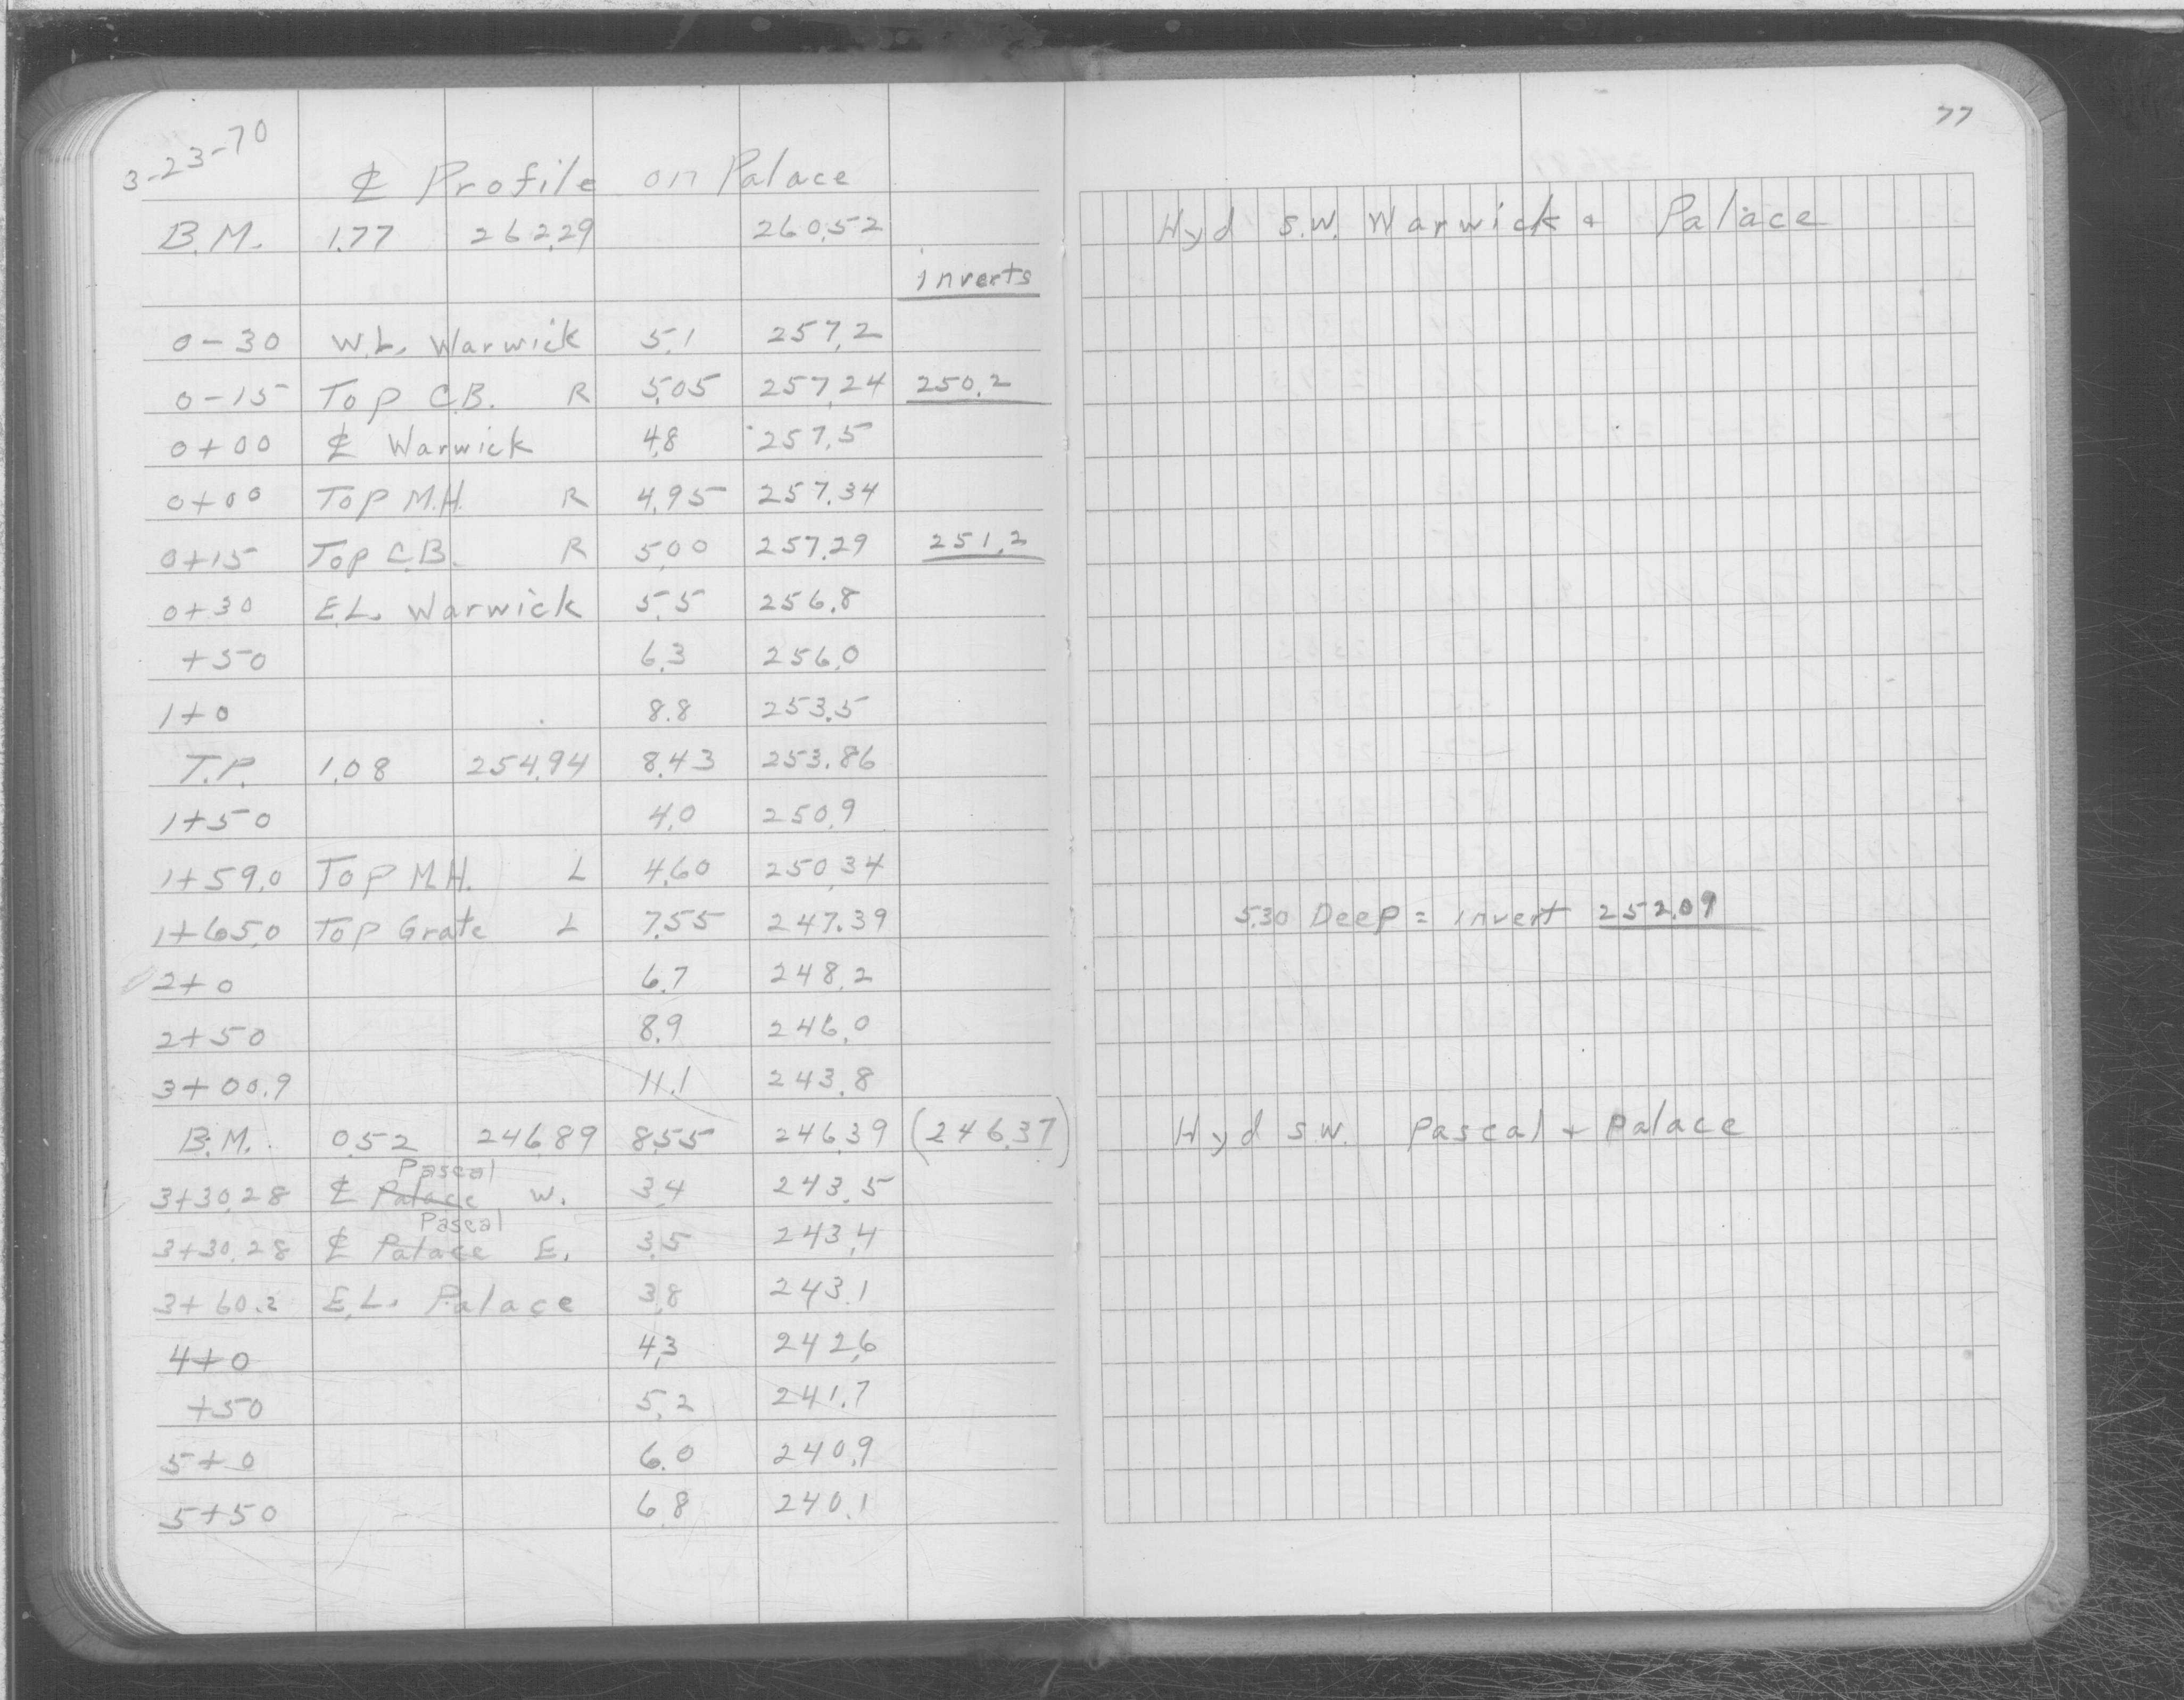 3-23-70
77
℄ Profile on Palace
B.M. 1.77 262.29 260.52 Hyd S.W. Warwick + Palace
inverts
0-30 W.L. Warwick 5.1 257.2
0-15 Top C.B. R 5.05 257.24 250.2
0+00 ℄ Warwick 4.8 257.5
0+00 Top M.H. R 4.95 257.34
0+15 Top C.B. R 5.00 257.29 251.2
0+30 E.L. Warwick 5.5 256.8
+50 6.3 256.0
1+0 8.8 253.5
T.P. 1.08 254.94 8.43 253.86
1+50 4.0 250.9
1+59.0 Top M.H. L 4.60 250.34
1+65.0 Top Grate L 7.55 247.39 5.30 Deep = invert 252.09
2+0 6.7 248.2
2+50 8.9 246.0
3+00.9 11.1 243.8
B.M. 0.52 246.89 8.55 246.39 (246.37) Hyd S.W. Pascal + Palace
Pascal
3+30.28 ℄ Palace W. 3.4 243.5
Pascal
3+30.28 ℄ Palace E. 3.5 243.4
3+60.2 E.L. Palace 3.8 243.1
4+0 4.3 242.6
+50 5.2 241.7
5+0 6.0 240.9
5+50 6.8 240.1